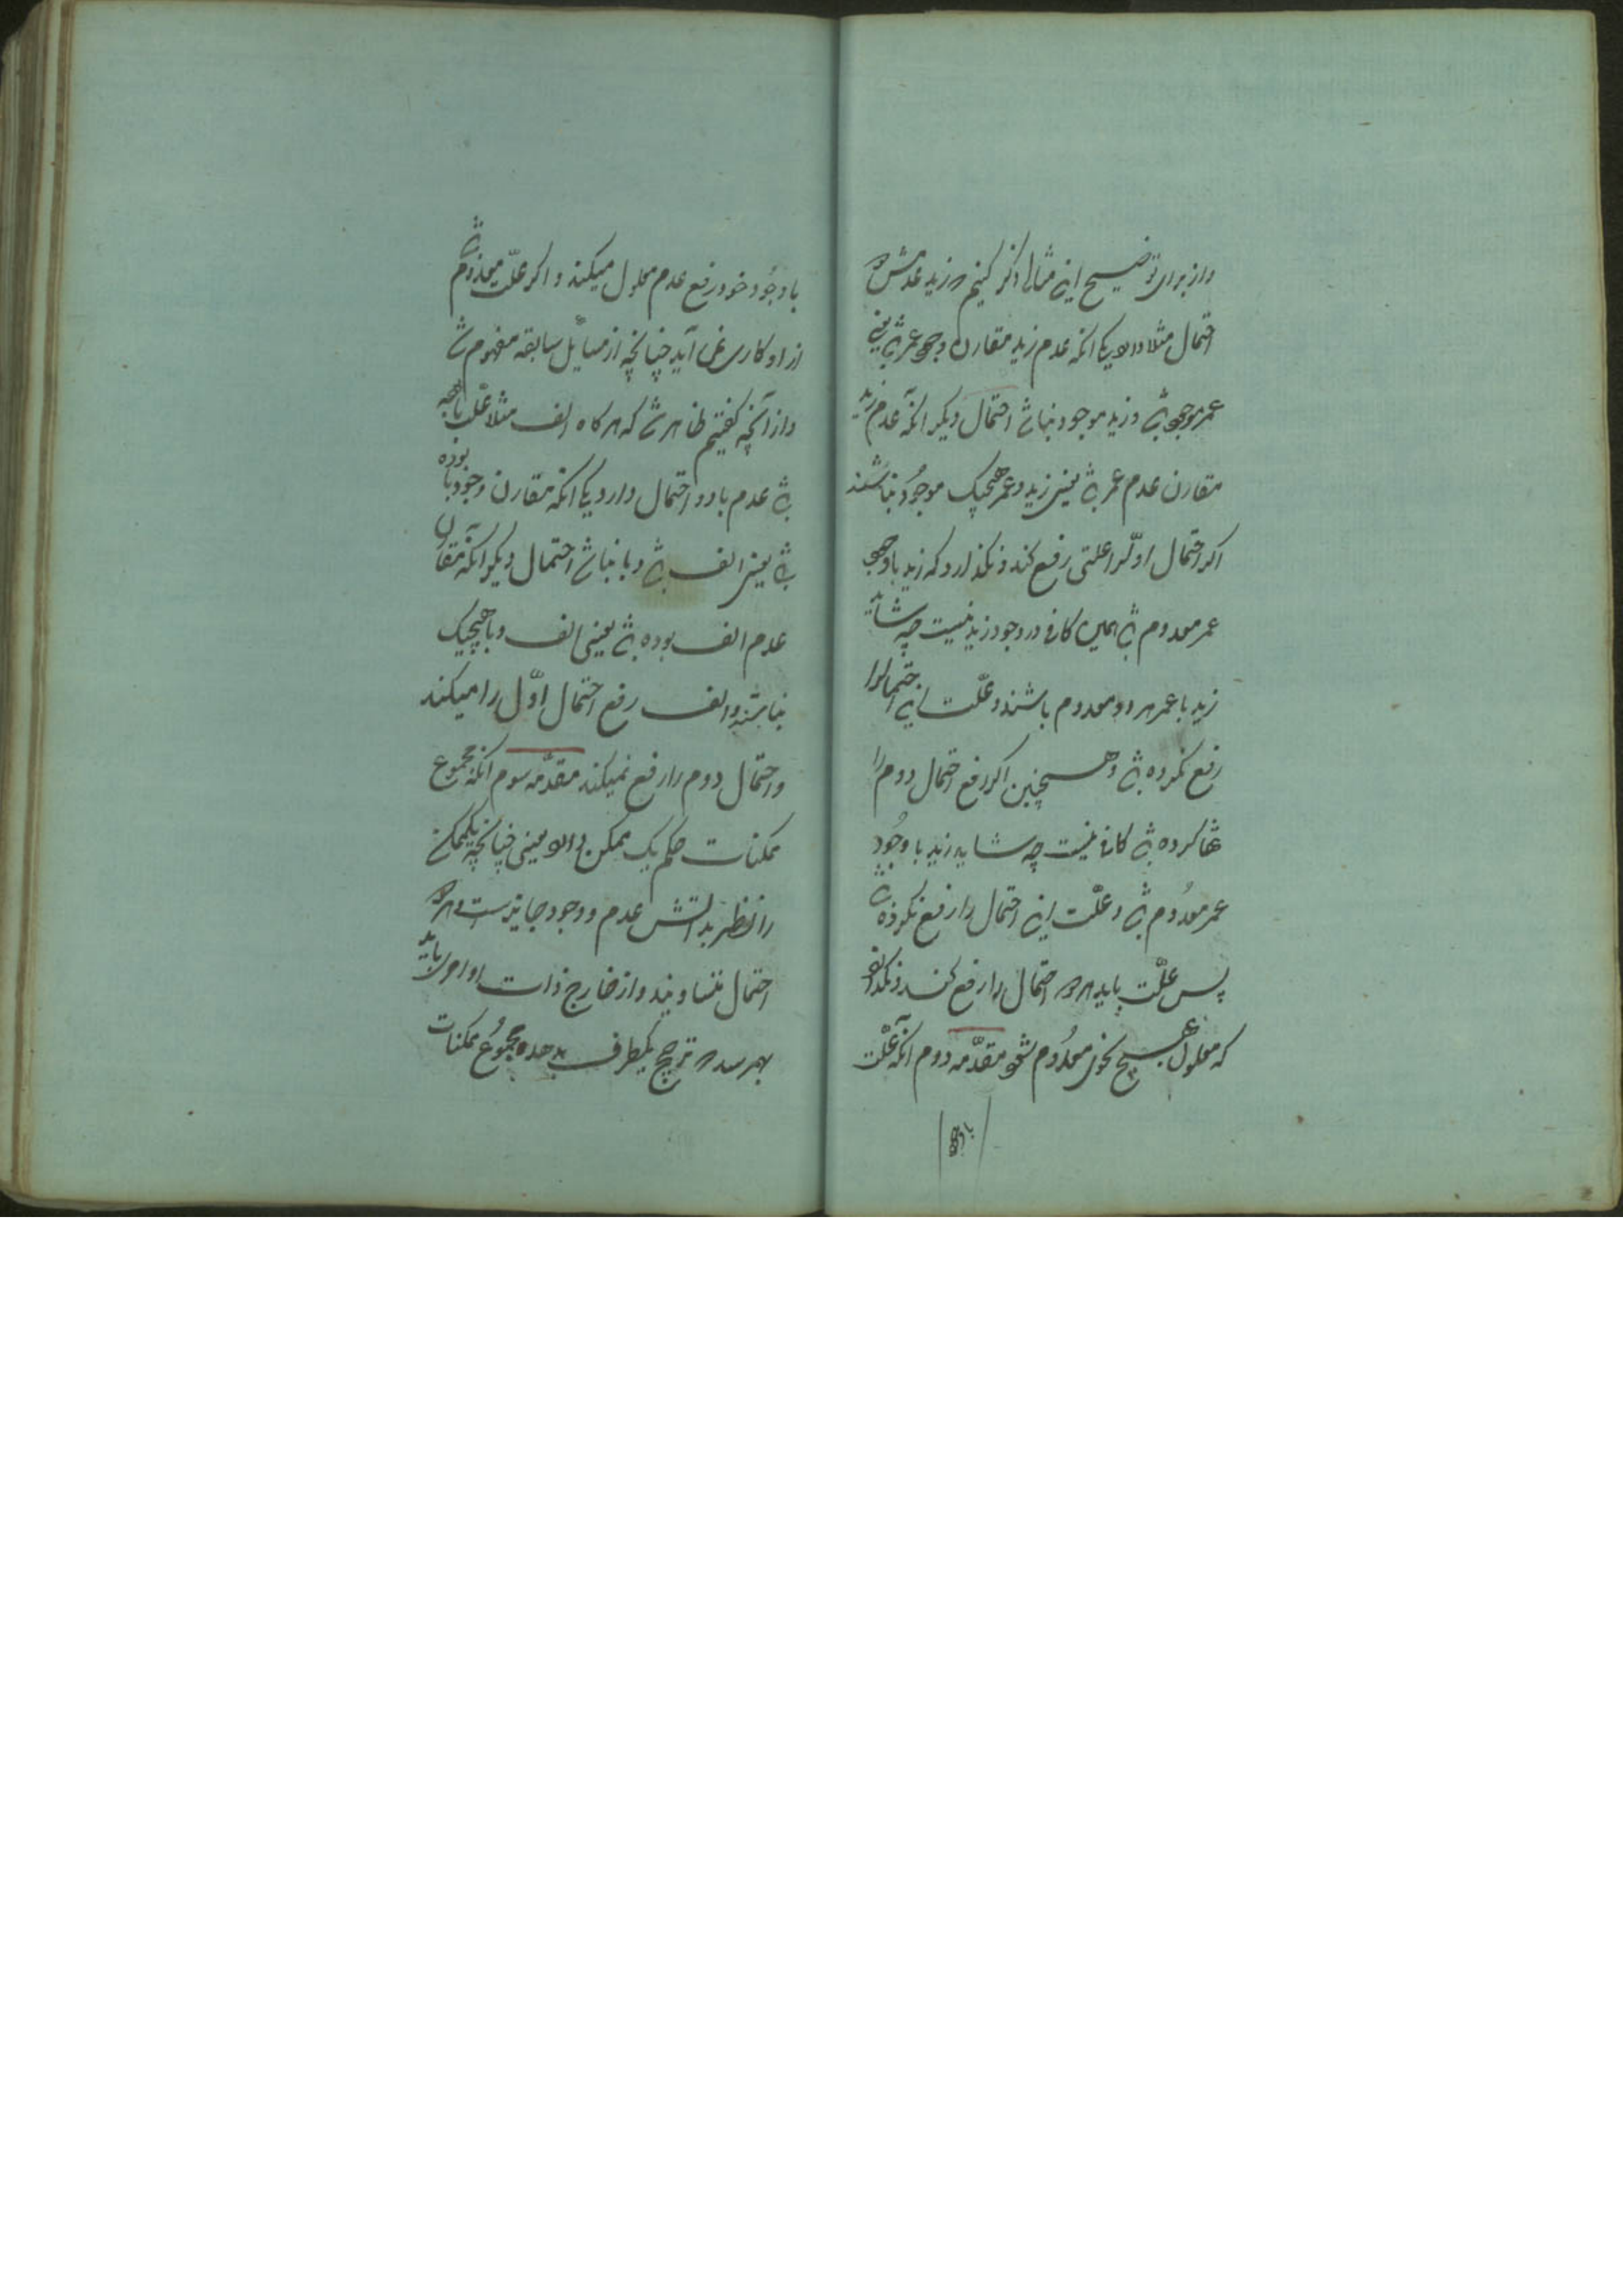 و از برای توضیح این مثالی ذکر کنیم که زید عدمش دو
احتمال مثلا دارد یکی آنکه عدم زید مقارن وجود عمر باشد یعنی
عمر موجود باشد و زید موجود نباشد احتمال دیگر آنکه عدم زید
مقارن عدم عمر باشد یعنی زید و عمر هیچیک موجود نباشند
اگر احتمال اول را علتی رفع کند و نگذارد که زید با وجود
عمر معدوم باشد همین کافی در وجود زید نیست چه شاید
زید با عمر هر دو معدوم باشند و علت این احتمال را
رفع نکرده باشد و همچنین اگر رفع احتمال دوم را
تنها کرده باشد کافی نیست چه شاید زید با وجود
عمر معدوم باشد و علت این احتمال را رفع نکرده باشد
پس علت باید هر دو احتمال را رفع کند و نگذارد
که معلول بهیچ نحوی معدوم شود مقدمه دوم آنکه علت
با وجود
با وجود خود رفع عدم معلول میکند و اگر علت معدوم باشد
از او کاری نمی آید چنانچه از مسائل سابقه مفهوم شد
و از آنچه گفتیم ظاهر شد که هر گاه الف مثلا علت با
باشد عدم با دو احتمال دارد یکی آنکه مقارن وجود با بوده
باشد یعنی الف باشد و با نباشد احتمال دیگر آنکه مقارن
عدم الف بوده باشد یعنی الف و با هیچیک
نباشند و الف رفع احتمال اول را میکند
و احتمال دوم را رفع نمیکند مقدمه سوم آنکه مجموع
ممکنات حکم یک ممکن دارد یعنی چنانچه یک ممکن
را نظر بذاتش عدم و وجود جایز است و هر دو
احتمال متساویند و از خارج ذات او امری باید
بهم رسد که ترجیح یکطرف بدهد مجموع ممکنات